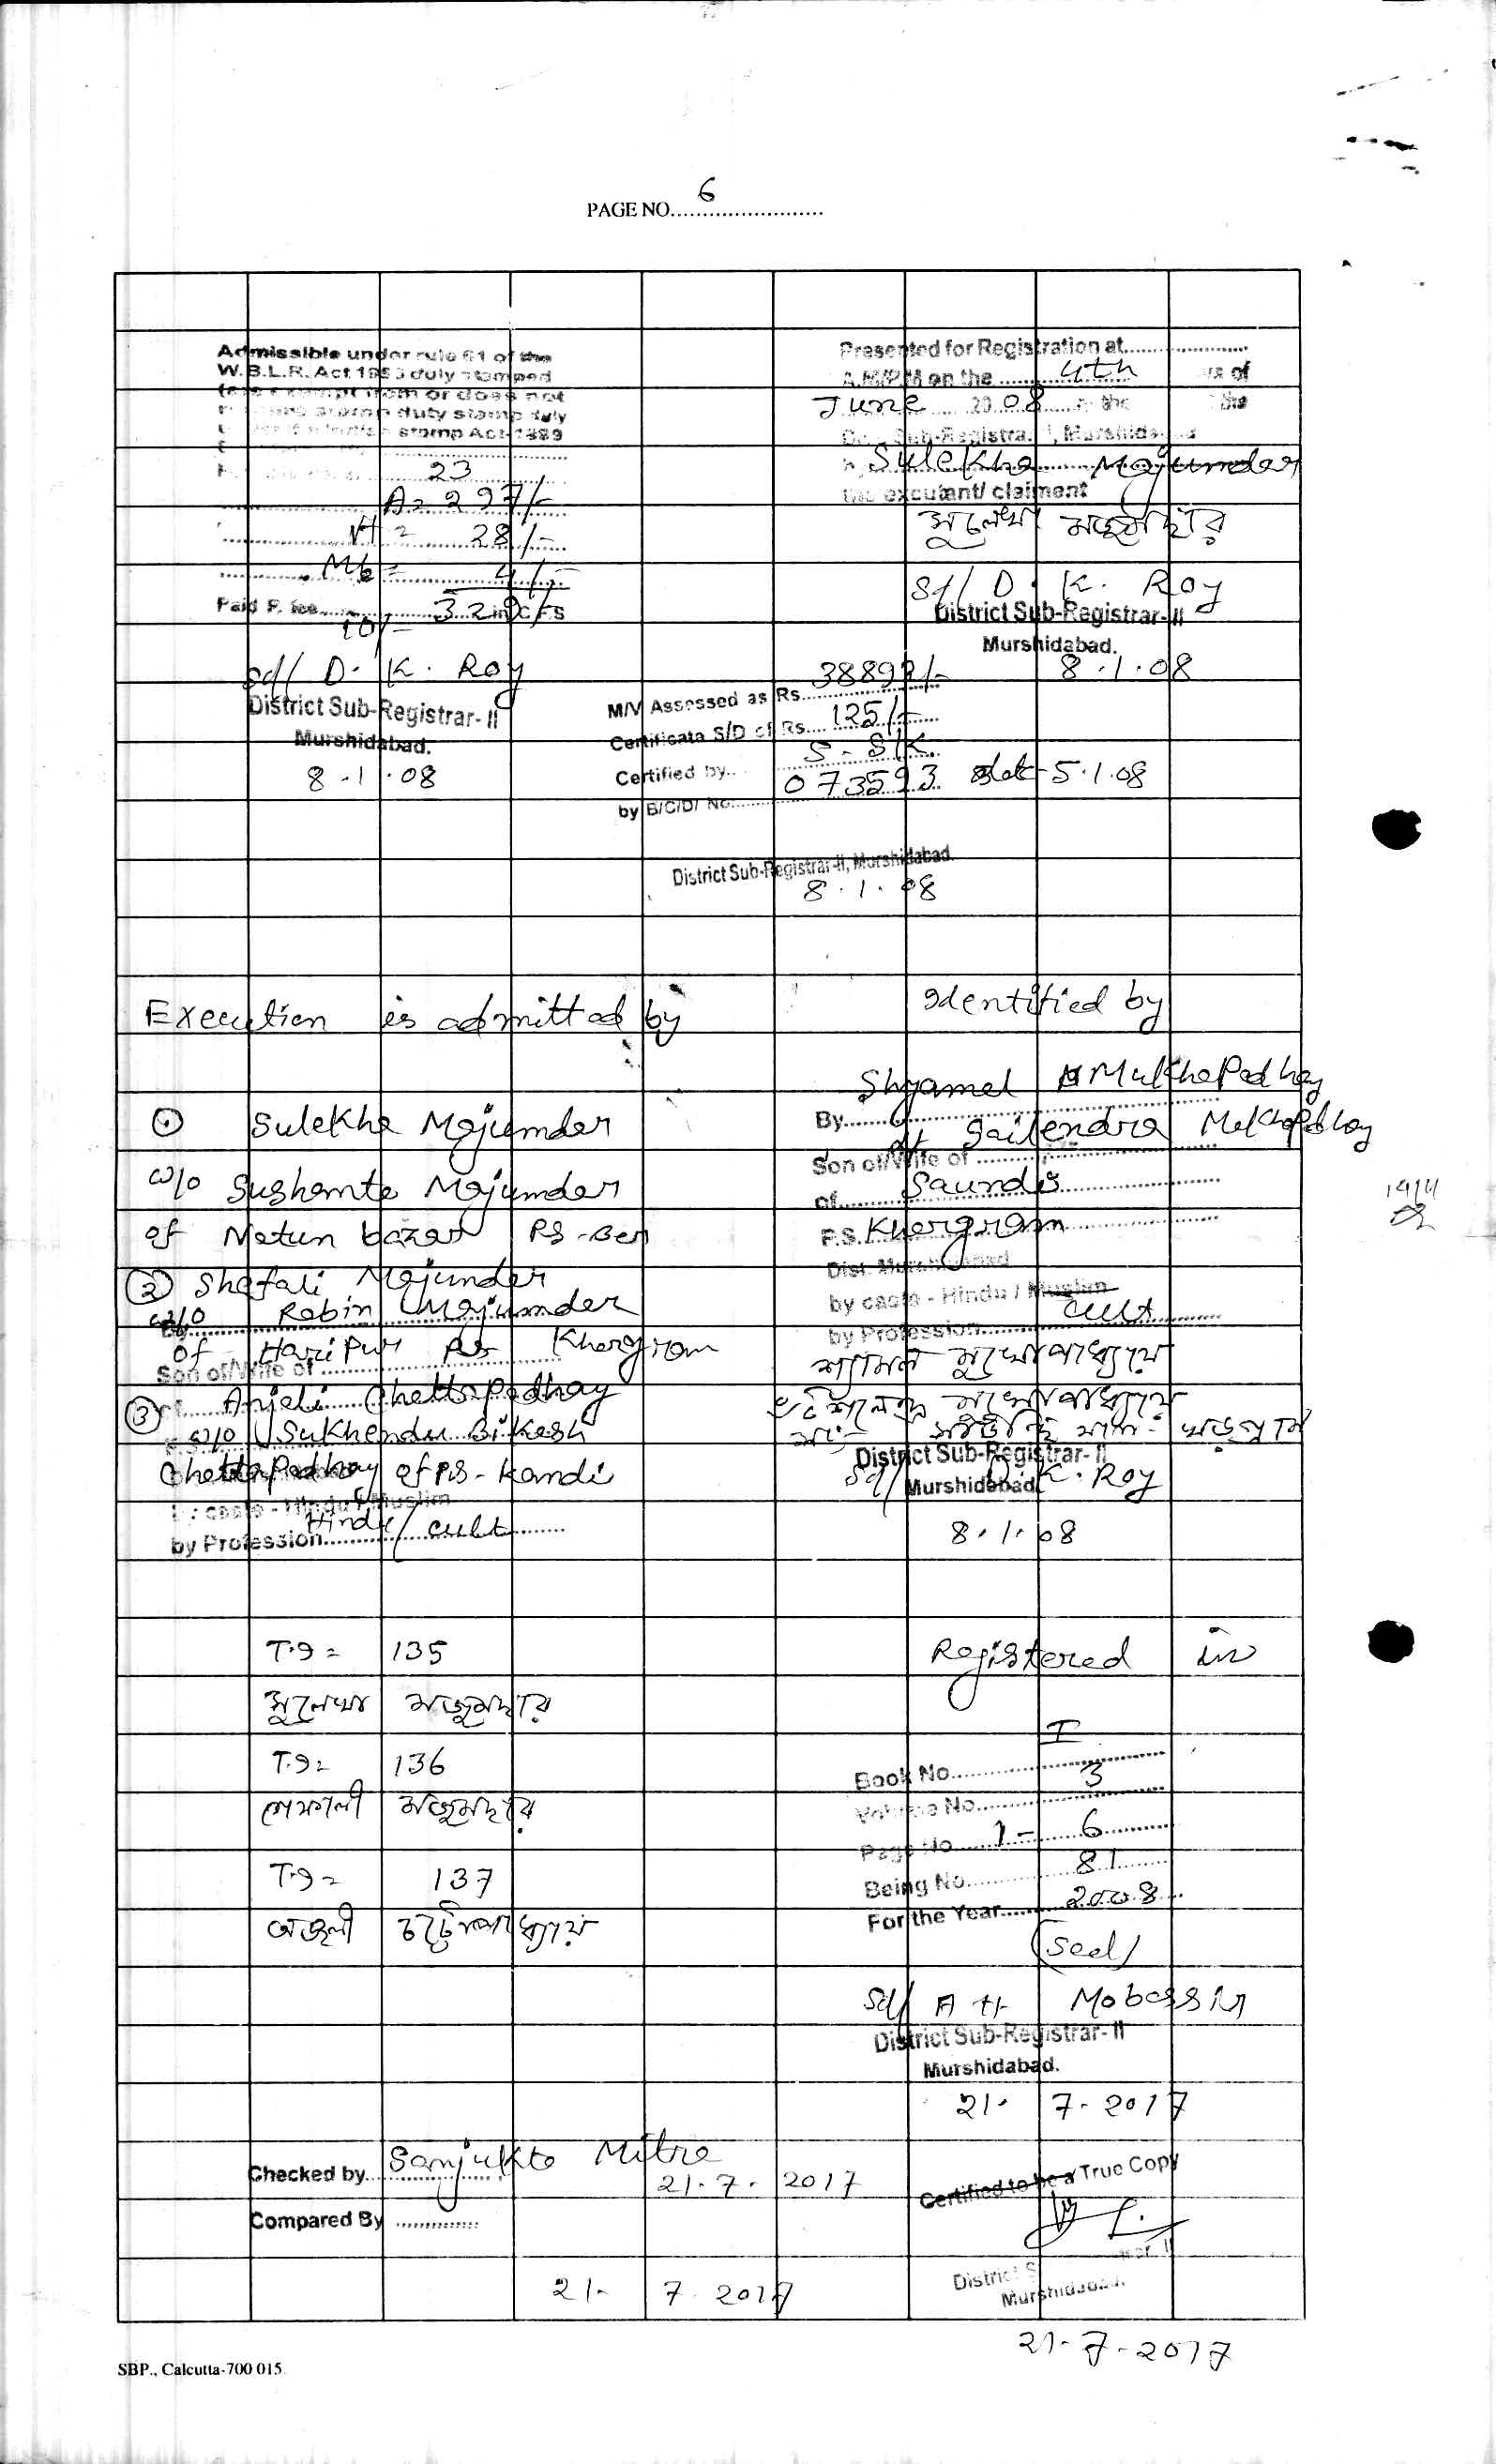 PAGE NO. 6
Admissible under rule 61 of the
W.B.L.R. Act 1953 duly stamped
from or does not
stamp duty stamp duty
stamp Act 1889
23
A = 297/-
28/-
4/-
Paid P. fee
10/-
sd/ D. K. Roy
District Sub-Registrar- II
Murshidabad.
8.1.08
Presented for Registration at
A.M/P.M on the 4th
June 2008 the
Sub-Registrar, Murshidabad
Sulekha Majumder
the excutant/ claiment
সুলেখা মজুমদার
Sd/ D. K. Roy
District Sub-Registrar- II
Murshidabad.
8.1.08
M/V Assessed as Rs. 38892/-
Certificate S/D of Rs. 125/-
Certified by
by B/C/D/ No. 073593 5.1.08
District Sub-Registrar-II, Murshidabad.
8.1.08
Execution is admitted by
① Sulekha Majumder
w/o Sushanta Majumder
of Natun bazar PS - Ber
② Shefali Majumder
w/o Robin Majumder
of Haripur PS Khargram
Son of/Wife of
③ Anjali Chattapadhay
w/o Sukhendu Bikash
Chattapadhay of PS - Kandi
by caste - Hindu / Muslim
Hindu/ cult
by Profession
Identified by
Shyamal Mukhapadhay
By
Sailendra Mukhapadhay
Son of/Wife of
of
P.S. Khargram
Dist. Murshidabad
by caste - Hindu / Muslim
by Profession cult
শ্যামল মুখোপাধ্যায়
District Sub-Registrar- II
Sd/ D. K. Roy
Murshidabad
8.1.08
135
সুলেখা মজুমদার
136
শেফালী মজুমদার
137
অঞ্জলী চট্টোপাধ্যায়
Registered in
Book No. I
Volume No. 3
Page No. 1 - 6
Being No. 81
For the Year 2008
(Seal)
Sd/ A H Mobassir
District Sub-Registrar- II
Murshidabad.
21. 7. 2017
Checked by Sanjukta Mitra
21. 7. 2017
Compared By
21. 7. 2017
Certified to be a True Copy
Murshidabad.
21-7-2017
SBP., Calcutta-700 015